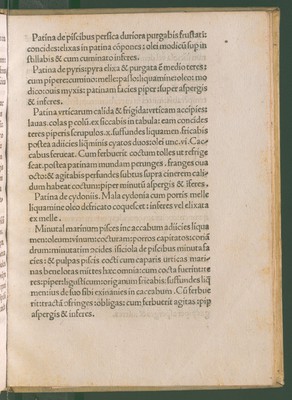 Patina de piscibus persica duriora purgabis frustati:
concides:elixas in patina cõpones: olei modicũ sup in
stillabis & cum cuminato inferes.
Patina de pyris:pyra elixa & purgata e medio teres:
cum pipere:cumino:melle:passo:liquamine:oleo:mo
dico:ouis myxis: patinam facies piper:super aspergis
& inferes.
Patina vrticarum calida & frigida:vrticam accipies:
lauas.colas p colũ.exsiccabis in tabula:eam concides
teres piperis scrupulos.x.suffundes liquamen.fricabis
postea adiicies liqminis cyatos duos:olei unc.vi.Cac
cabus ferueat. Cum ferbuerit coctum tolles ut refrige
scat.postea patinam mundam perunges.franges oua
octo:& agitabis perfundes subtus supra cinerem cali
dum habeat coctum:piper minutũ aspergis & ĩferes.
Patina de cydoniis. Mala cydonia cum porris melle
liquamine oleo defricato coques:et inferes vel elixata
ex melle.
Minutal matinum pisces inc accabum adiicies liqua
men:oleum:vinum:cocturam:porros capitatos:coriã
drum:minutatim ɔcides isticiola de piscibus minuta fa
cies: & pulpas piscis cocti cum caparis urticas mari
nas bene lotas mittes hæc omnia:cum cocta fuerint:te
res:piper:ligusticum:origanum fricabis:suffundes liq
men:ius de suo sibi exinanies in caccabum. Cũ ferbue
rit:tractã:ɔfringes:obligas:cum ferbuerit agitas:pip
aspergis & inferes.